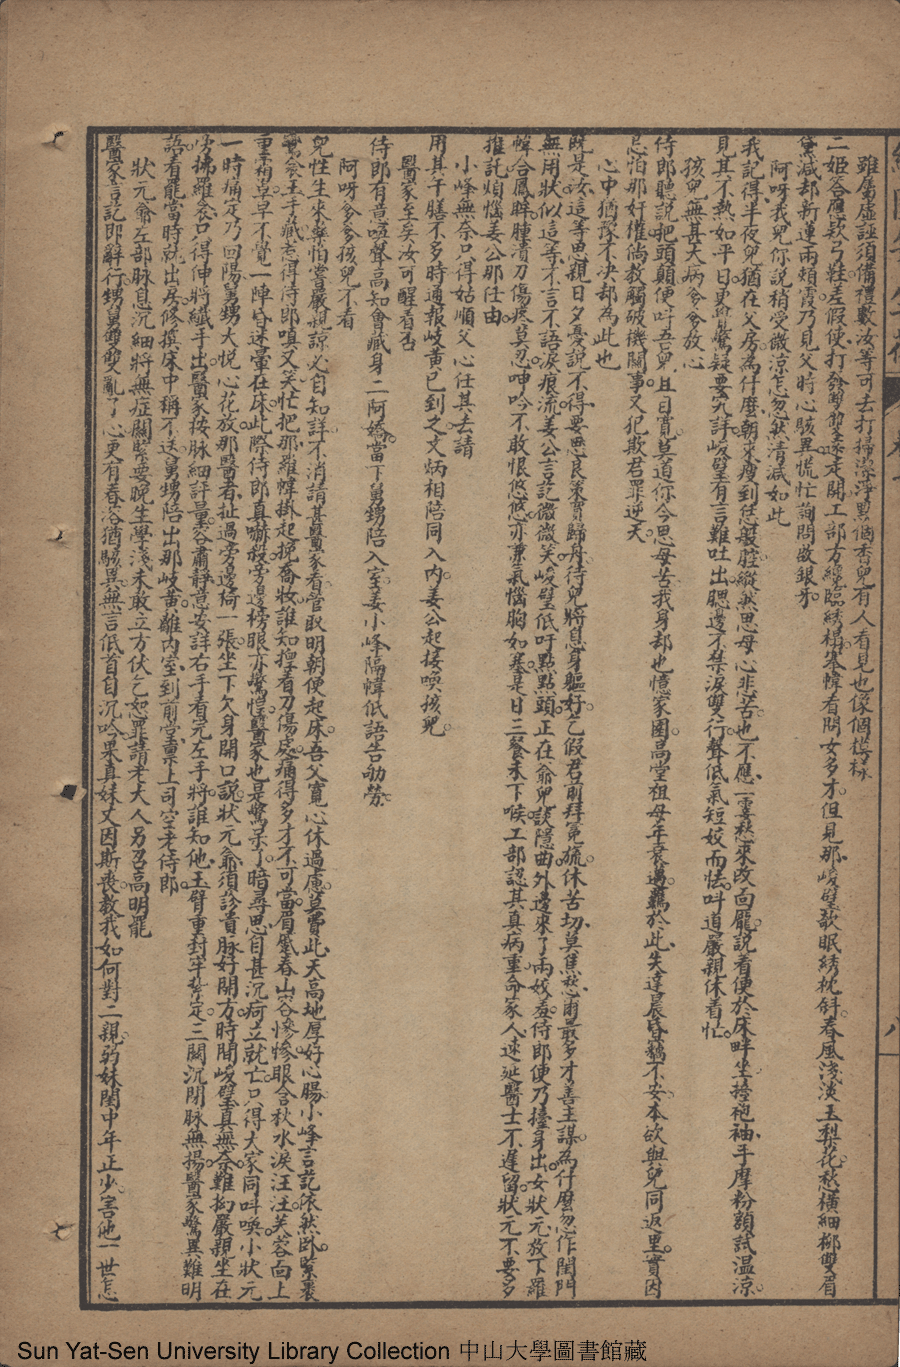 雖屬虛誣須備禮數汝等可去打掃潔淨點個香兒有人看見也像個模樣
二姬答應欵弓鞋差假使打發夢蘭遂走開工部方纔臨綉榻搴幃看問女多才但見那峻璧欹眠綉枕斜春風淺淡玉梨花愁橫細柳雙眉
黛減却新蓮兩頰霞乃見父時心駭異慌忙詢問啟銀牙
阿呀我兒你說稍受微涼怎忽然清減如此
我記得半夜兒猶在父房為什麼朝來瘦到恁般腔縱然思母心悲苦也不應一霎愁來改向龐說看便於床畔坐捲袍袖手摩粉額試温涼
見其不熱如平日更加驚疑要究詳峻璧有言難吐出腮邊才禁淚雙行聲低氣短姣而怯叫道嚴親休着忙
孩兒無甚大病爹爹放心
侍郎聽說把頭顛便叫吾兒且目賞莫道你今思母苦我身却也憶家園高堂祖母年衰邁覊於此失違晨昏竊不安本欲與兒同返里實因
忌怕那奸權倘教觸破機關事又犯欺君罪逆天
心中猶豫不决却為此也
既是汝這等思親日夕憂說不得要思良策賣歸舟待兒將息身軀好乞假君前拜冕旒休苦切莫焦愁甫最多才善主謀為什麼忽作閨門
無用狀似這等才言不語淚痕流姜公言訖微微笑峻璧低吁點點頭正在爺兒談隱曲外邊來了兩姣羞侍郎便乃擡身出女狀元放下羅
幃合鳳眸腫潰刀傷疼莫忍呻吟不敢恨悠悠亦兼氣惱胸如塞是日三餐未下喉工部認其真病重命家人速延醫士不遲留狀元不要多
推託煩惱姜公那任由
小峰無奈只得姑順父心任其去請
用其干膳不多時通報岐黄已到之文炳相陪同入内姜公起接喚孩兒
醫家至矣汝可醒看否
侍郎有意喧聲高知會臧身二阿嬌當下舅甥陪入室姜小峰隔幃低語告劬勞
阿呀爹爹孩兒不看
兒性生來藥怕嘗嚴親諒必自知詳不消請甚醫家看管取明朝便起床吾父寬心休過慮莫費此天高地厚好心腸小峰言訖依然卧緊裹
鴛衾玉手藏悲得侍郎嗔又笑忙把那羅幃掛起挽喬妝誰知捏着刀傷處痛得多才不可當眉蹙春山容慘慘眼含秋水淚汪汪芙蓉面上
重梢皂早不覺一陣昏迷暈在床此際侍郎真嚇殺旁邊榜眼亦驚惶醫家也是驚呆了暗尋思自甚沉疴立就亡只得大家同叫喚小狀元
一時痛定乃回陽舅甥大悦心花放那醫者扯過旁邊倚一張坐下欠身開口說狀元爺須診貴脉好開方時間峻璧真無奈難拘嚴親坐在
旁拂羅衾只得伸將纖手出醫家按脉細評量容肅靜意安詳右手看完左手將誰知他玉臂重封牢幫定三關沉閉脉無揚醫家驚異難明
語看罷當時就出房修撰床中稱不送舅甥陪出那岐黄離内室到前堂禀上司空老侍郎
狀元爺左部脉息沉細將無症關緊要晚生學淺未敢立方伏乞恕罪請老大人另召高明罷
醫家言訖即辭行甥舅雙雙亂了心更有春溶猶駭異無言低首自沉吟果真妹丈因斯喪教我如何對二親弱妹閨中年正少害他一世怎
Sun Yat-Sen University Library Collection 中山大學圖書館藏